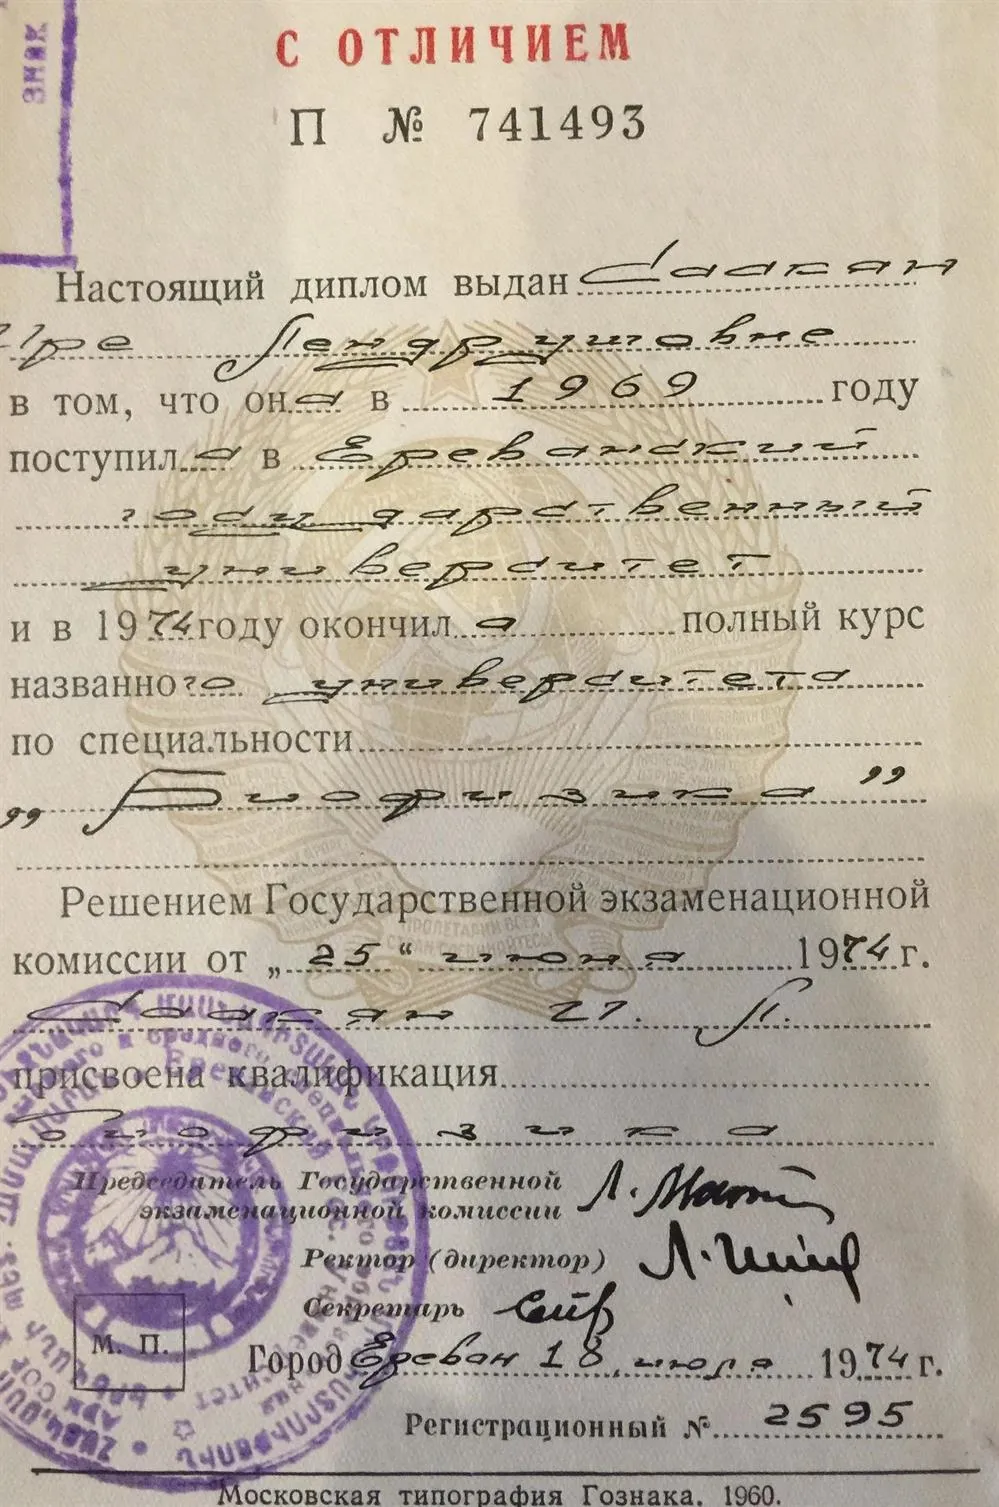 ЗНАК
С ОТЛИЧИЕМ
П № 741493
Настоящий диплом выдан Саакян
Ире Пендрушовне
в том, что она в 1969 году
поступила в Ереванский
государственный
университет
и в 1974 году окончила полный курс
названного университета
по специальности
„Биофизика”
Решением Государственной экзаменационной
комиссии от „25“ июня 1974 г.
Саакян И. П.
присвоена квалификация
биофизика
Председатель Государственной
экзаменационной комиссии
Ректор (директор)
Секретарь
М. П.
Город Ереван 18 июля 1974 г.
Регистрационный № 2595
Московская типография Гознака. 1960.